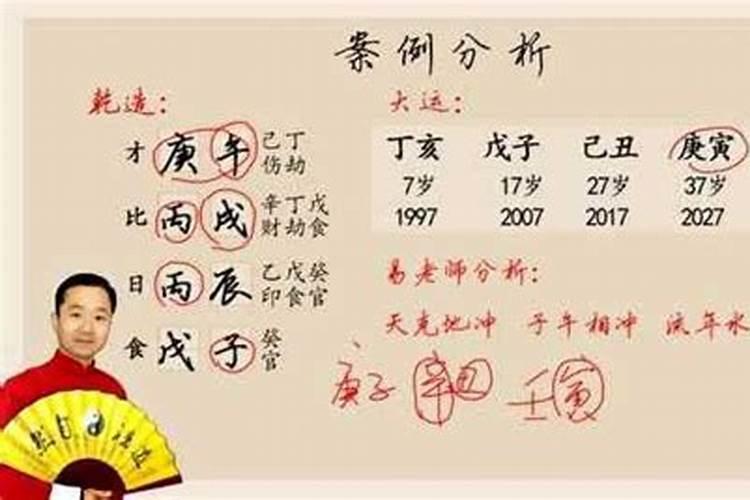 案例分析
乾造：
才 庚午 己丁
伤劫
比 丙戌 辛丁戊
财劫食
日 丙辰 乙戊癸
印食官
食 戊子 癸
官
大运：
丁亥 戊子 己丑 庚寅
7岁 17岁 27岁 37岁
1997 2007 2017 2027
易老师分析：
天克地冲 子午相冲 流年水
庚子 辛丑 壬寅